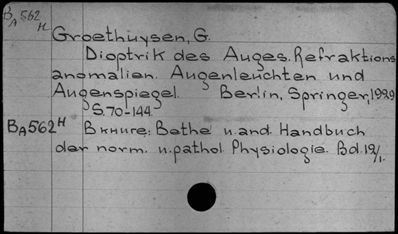 BA 562 H
Groethuysen, G.
Dioptrik des Auges. Refraktions
anomalien. Augenleuchten und
Augenspiegel. Berlin, Springer, 1929
S. 70-144.
BA562H Вкниге: Bethe u. and. Handbuch
der norm. u. pathol. Physiologie. Bd. 12/1.